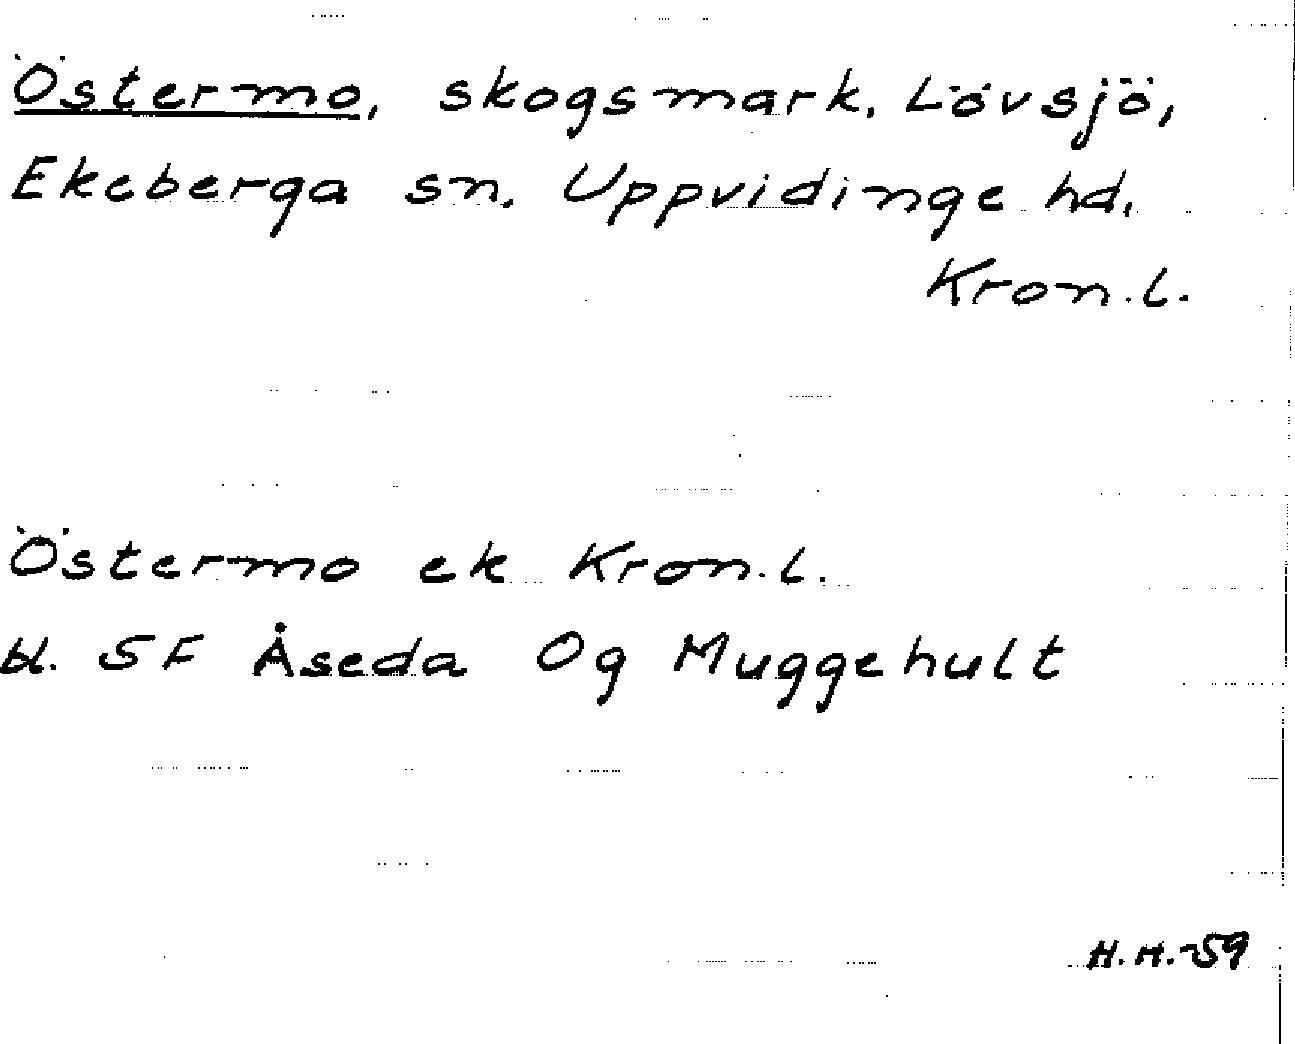 Östermo, skogsmark. Lövsjö,
Ekeberga sn. Uppvidinge hd.
Kron.l.
Östermo ek Kron.l.
bl. SF Åseda Og Muggehult
H.H.-59